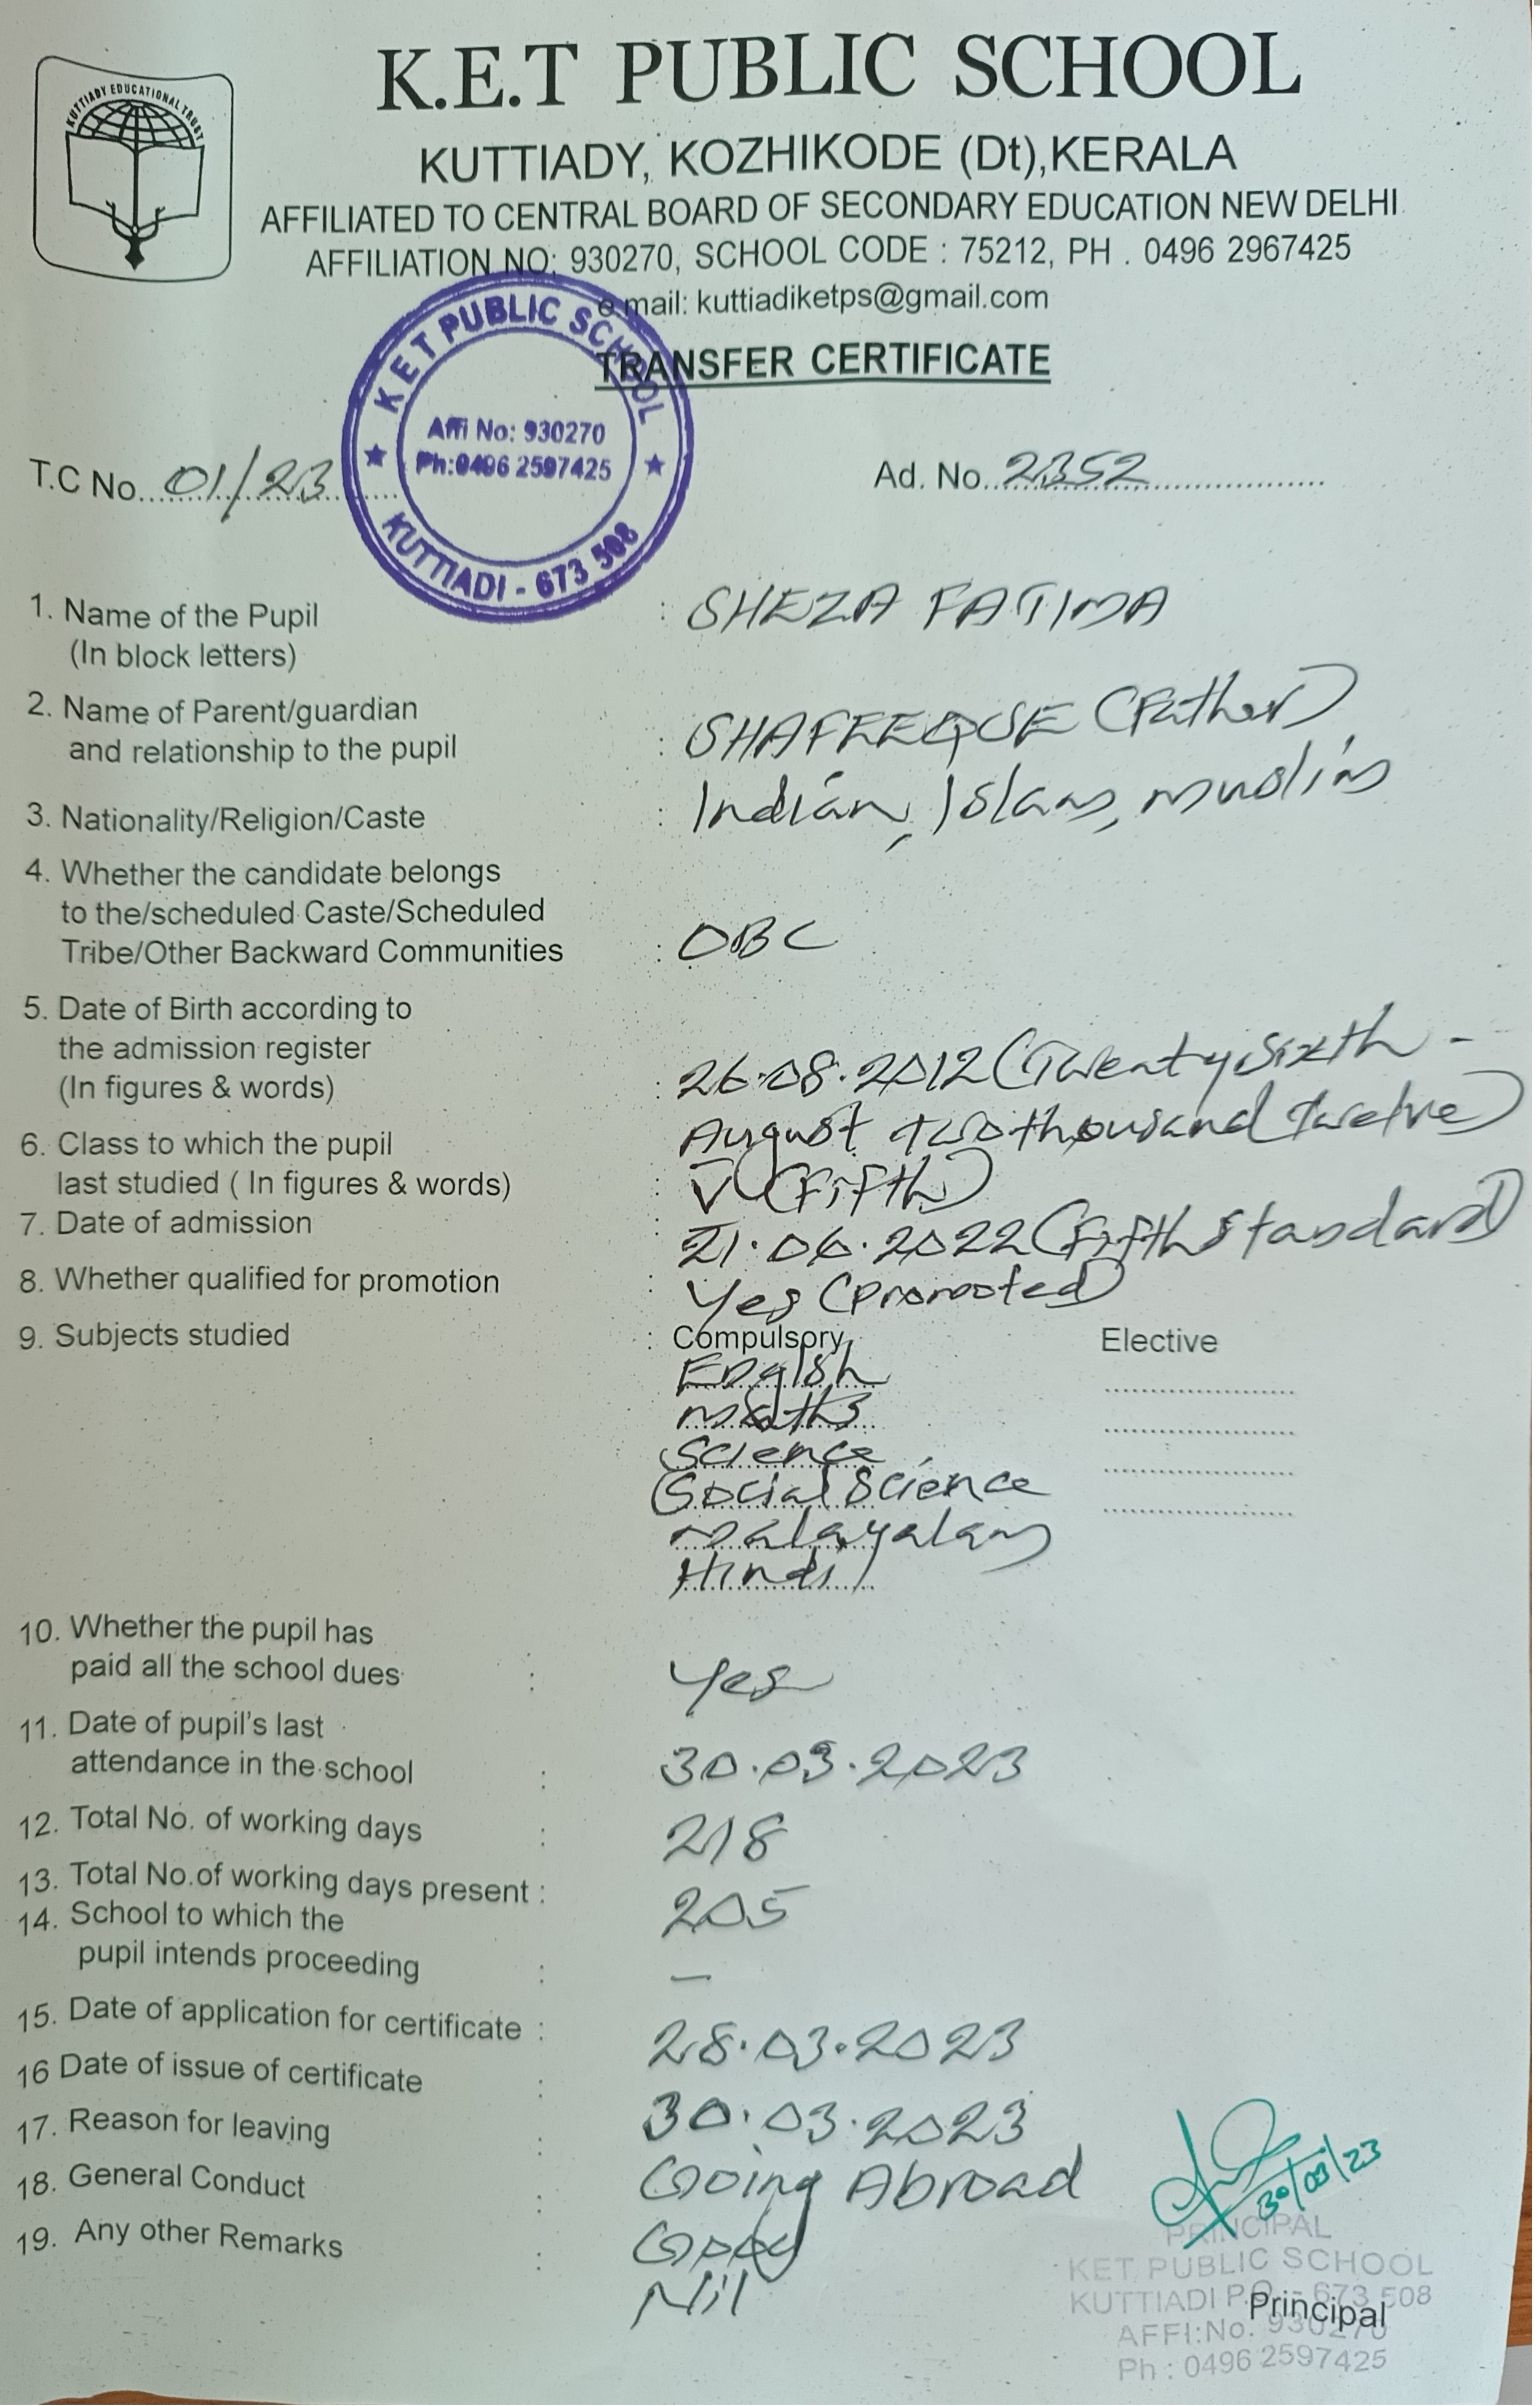 KUTTIADY EDUCATIONAL TRUST
K.E.T PUBLIC SCHOOL
KUTTIADY, KOZHIKODE (Dt),KERALA
AFFILIATED TO CENTRAL BOARD OF SECONDARY EDUCATION NEW DELHI
AFFILIATION NO: 930270, SCHOOL CODE : 75212, PH . 0496 2967425
e mail: kuttiadiketps@gmail.com
TRANSFER CERTIFICATE
KET PUBLIC SCHOOL
Affi No: 930270
Ph:0496 2597425
KUTTIADI - 673 508
T.C No. 01/23 Ad. No. 2352
1. Name of the Pupil : SHEZA FATIMA
(In block letters)
2. Name of Parent/guardian
and relationship to the pupil : SHAFEEQUE (Father)
3. Nationality/Religion/Caste : Indian, Islam, muslim
4. Whether the candidate belongs
to the/scheduled Caste/Scheduled
Tribe/Other Backward Communities : OBC
5. Date of Birth according to
the admission register
(In figures & words) : 26.08.2012 (Twenty Sixth -
August two thousand twelve)
6. Class to which the pupil
last studied ( In figures & words) : V (Fifth)
7. Date of admission : 21.06.2022 (Fifth Standard)
8. Whether qualified for promotion : Yes (promoted)
9. Subjects studied : Compulsory Elective
English
maths
Science
Social Science
malayalam
Hindi
10. Whether the pupil has
paid all the school dues : Yes
11. Date of pupil's last
attendance in the school : 30.03.2023
12. Total No. of working days : 218
13. Total No.of working days present : 205
14. School to which the
pupil intends proceeding : —
15. Date of application for certificate : 28.03.2023
16 Date of issue of certificate : 30.03.2023
17. Reason for leaving : Going Abroad
18. General Conduct : Good
19. Any other Remarks : Nil
30/03/23
PRINCIPAL
KET PUBLIC SCHOOL
KUTTIADI P.O. - 673 508
Principal
AFFI:No. 930270
Ph : 0496 2597425